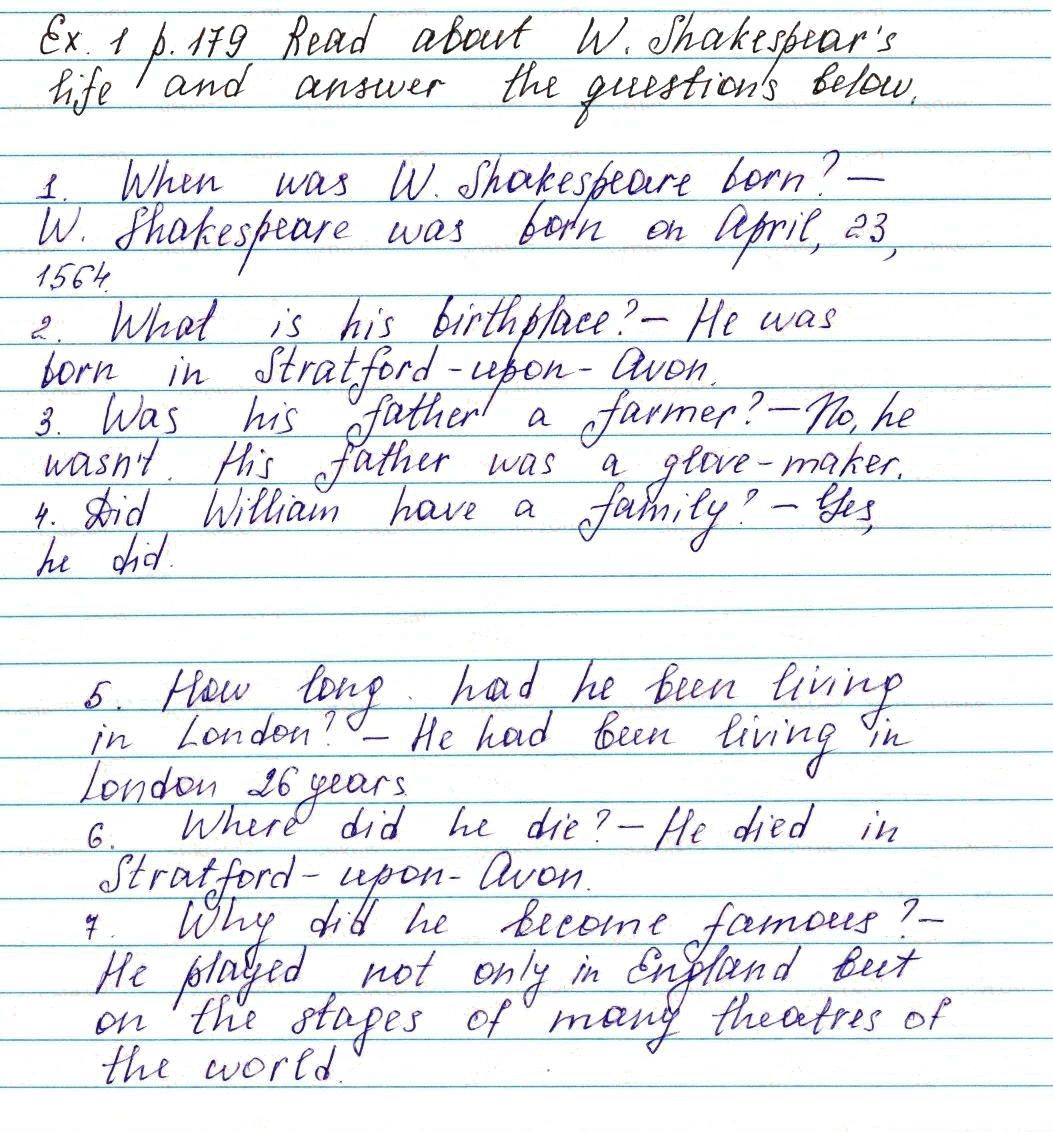 Ex. 1 p. 179 Read about W. Shakespear's
life and answer the questions below.
1. When was W. Shakespeare born? —
W. Shakespeare was born on April, 23,
1564.
2. What is his birthplace? — He was
born in Stratford-upon-Avon.
3. Was his father a farmer? — No, he
wasn't. His father was a glove-maker.
4. Did William have a family? — Yes,
he did.
5. How long had he been living
in London? — He had been living in
London 26 years
6. Where did he die? — He died in
Stratford-upon-Avon.
7. Why did he become famous? —
He played not only in England but
on the stages of many theatres of
the world.